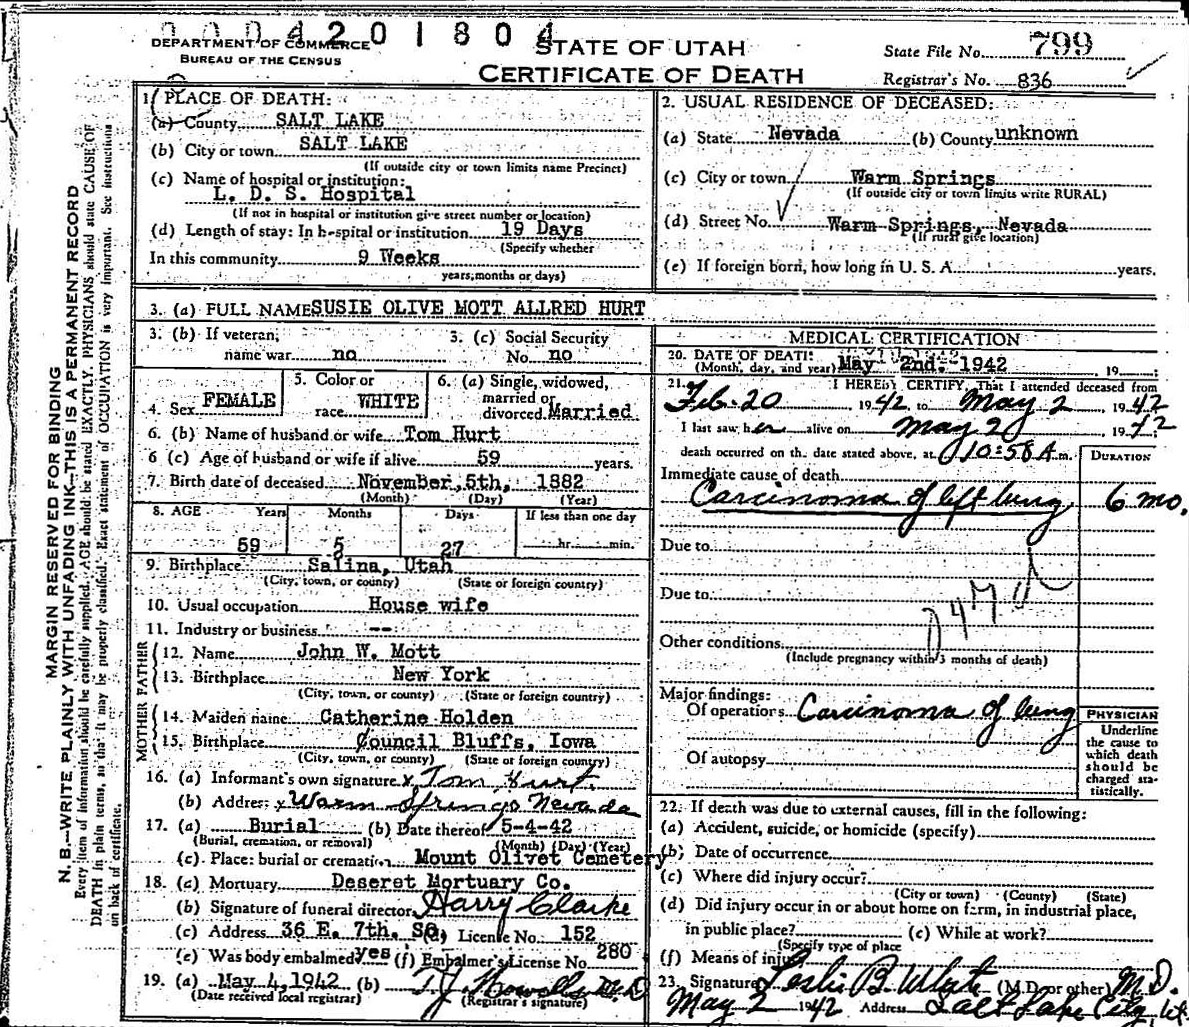 0004201804
DEPARTMENT OF COMMERCE
BUREAU OF THE CENSUS
STATE OF UTAH
CERTIFICATE OF DEATH
State File No. 799
Registrar's No. 836
MARGIN RESERVED FOR BINDING
N. B.—WRITE PLAINLY WITH UNFADING INK—THIS IS A PERMANENT RECORD
Every item of information should be carefully supplied. AGE should be stated EXACTLY. PHYSICIANS should state CAUSE OF
DEATH in plain terms, so that it may be properly classified. Exact statement of OCCUPATION is very important. See instructions
on back of certificate.
1. PLACE OF DEATH:
(a) County SALT LAKE
(b) City or town SALT LAKE
(If outside city or town limits name Precinct)
(c) Name of hospital or institution:
L. D. S. Hospital
(If not in hospital or institution give street number or location)
(d) Length of stay: In hospital or institution 19 Days
(Specify whether
In this community 9 Weeks
years, months or days)
2. USUAL RESIDENCE OF DECEASED:
(a) State Nevada (b) County unknown
(c) City or town Warm Springs
(If outside city or town limits write RURAL)
(d) Street No. Warm Springs, Nevada
(If rural give location)
(e) If foreign born, how long in U. S. A. years.
3. (a) FULL NAME SUSIE OLIVE MOTT ALLRED HURT
3. (b) If veteran, name war no
3. (c) Social Security No. no
4. Sex FEMALE
5. Color or race WHITE
6. (a) Single, widowed, married or divorced Married
6. (b) Name of husband or wife Tom Hurt
6 (c) Age of husband or wife if alive 59 years.
7. Birth date of deceased November 5th, 1882
(Month) (Day) (Year)
8. AGE Years Months Days If less than one day
59 5 27 hr. min.
9. Birthplace Salina, Utah
(City, town, or county) (State or foreign country)
10. Usual occupation House wife
11. Industry or business --
FATHER
12. Name John W. Mott
13. Birthplace New York
(City, town, or county) (State or foreign country)
MOTHER
14. Maiden name Catherine Holden
15. Birthplace Council Bluffs, Iowa
(City, town, or county) (State or foreign country)
16. (a) Informant's own signature x Tom Hurt.
(b) Address x Warm Springs Nevada
17. (a) Burial (b) Date thereof 5-4-42
(Burial, cremation, or removal) (Month) (Day) (Year)
(c) Place: burial or cremation Mount Olivet Cemetery
18. (a) Mortuary Deseret Mortuary Co.
(b) Signature of funeral director Harry Clarke
(c) Address 36 E. 7th. So. (d) License No. 152
(e) Was body embalmed? yes (f) Embalmer's License No 280
19. (a) May 4, 1942 (b) T.J. Howells M.D.
(Date received local registrar) (Registrar's signature)
MEDICAL CERTIFICATION
20. DATE OF DEATH:
(Month, day, and year) May 2nd. 1942, 19
21. I HEREBY CERTIFY, That I attended deceased from
Feb. 20 1942 to May 2 1942
I last saw her alive on May 2 1942
death occurred on the date stated above, at 10:58 A m.
DURATION
Immediate cause of death
Carcinoma of left lung 6 mo.
Due to
Due to
Other conditions
(Include pregnancy within 3 months of death)
Major findings:
Of operations Carcinoma of lung
Of autopsy
PHYSICIAN
Underline
the cause to
which death
should be
charged sta-
tistically.
22. If death was due to external causes, fill in the following:
(a) Accident, suicide, or homicide (specify)
(b) Date of occurrence
(c) Where did injury occur?
(City or town) (County) (State)
(d) Did injury occur in or about home on farm, in industrial place,
in public place? (e) While at work?
(Specify type of place
(f) Means of injury
23. Signature Leslie B. White (M.D. or other) M.D.
May 2 1942 Address Salt Lake City, Ut